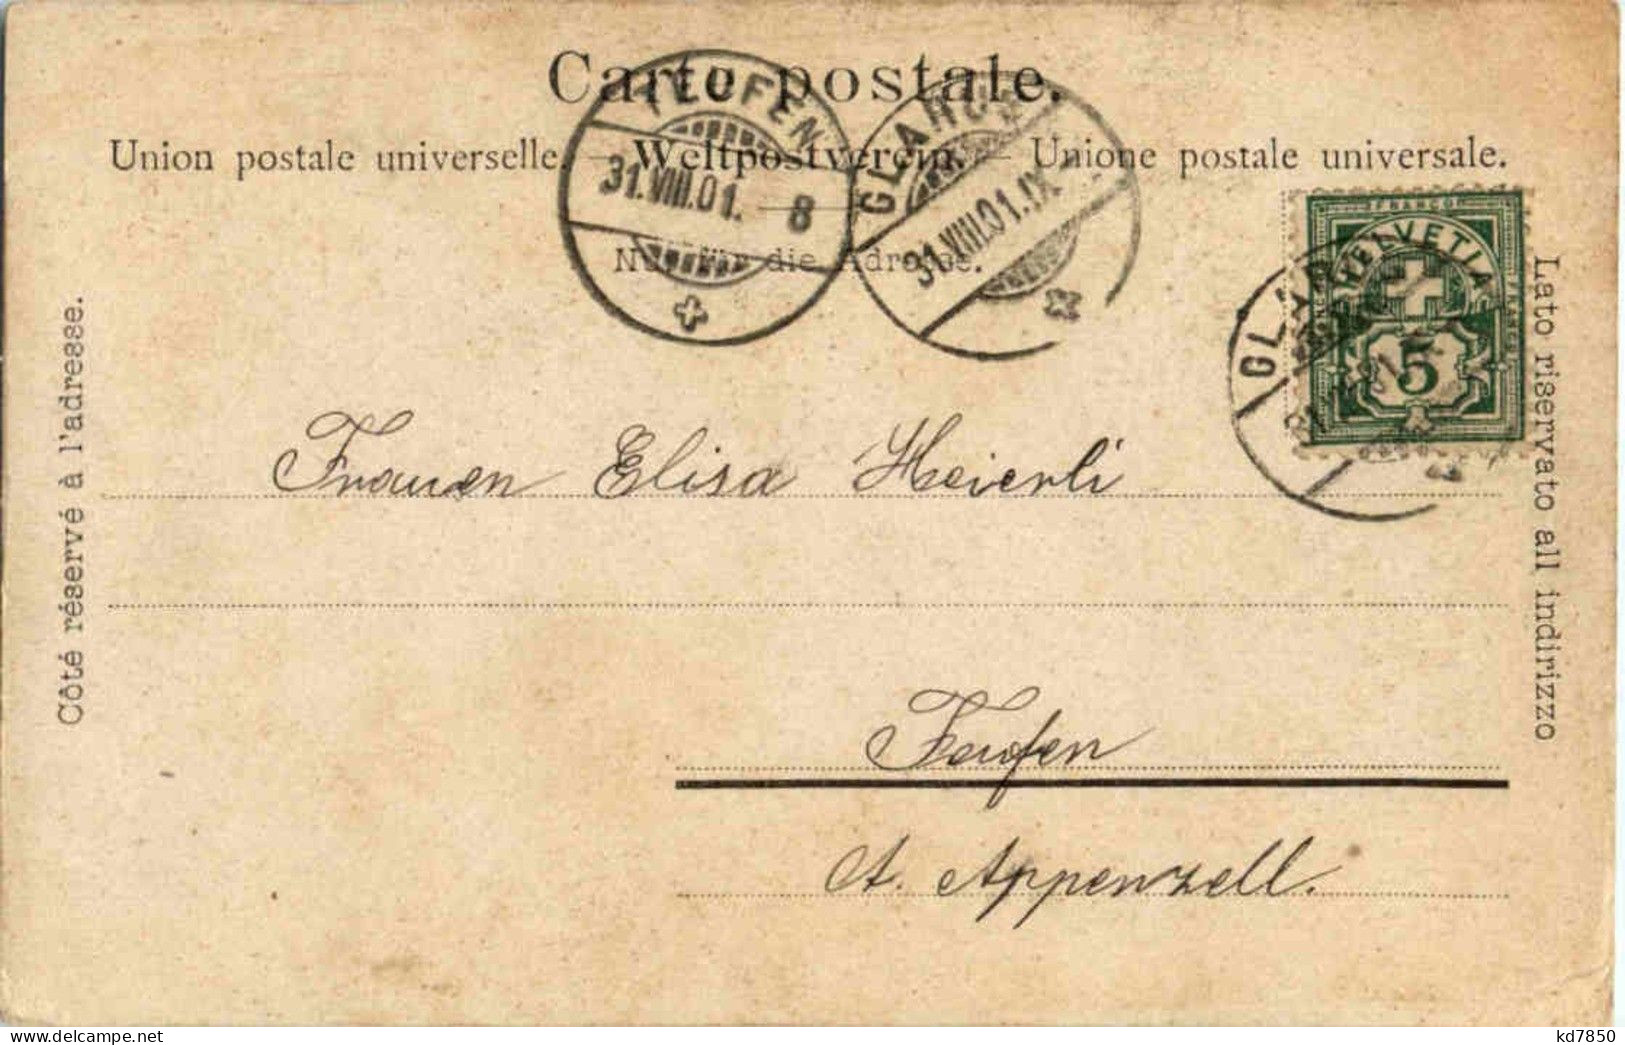 Carte postale.
Union postale universelle. — Weltpostverein. — Unione postale universale.
Nur für die Adresse.
TEUFEN
31.VIII.01. 8
GLARUS
31.VIII.01.IX
FRANCO
HELVETIA
5
GLAR
Côté réservé à l'adresse.
Lato riservato all indirizzo
Frauen Elisa Heierli
Teufen
A. Appenzell.
kd7850